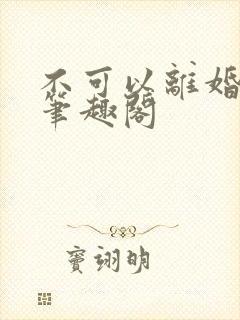 不可以離婚
筆趣閣
竇翊明